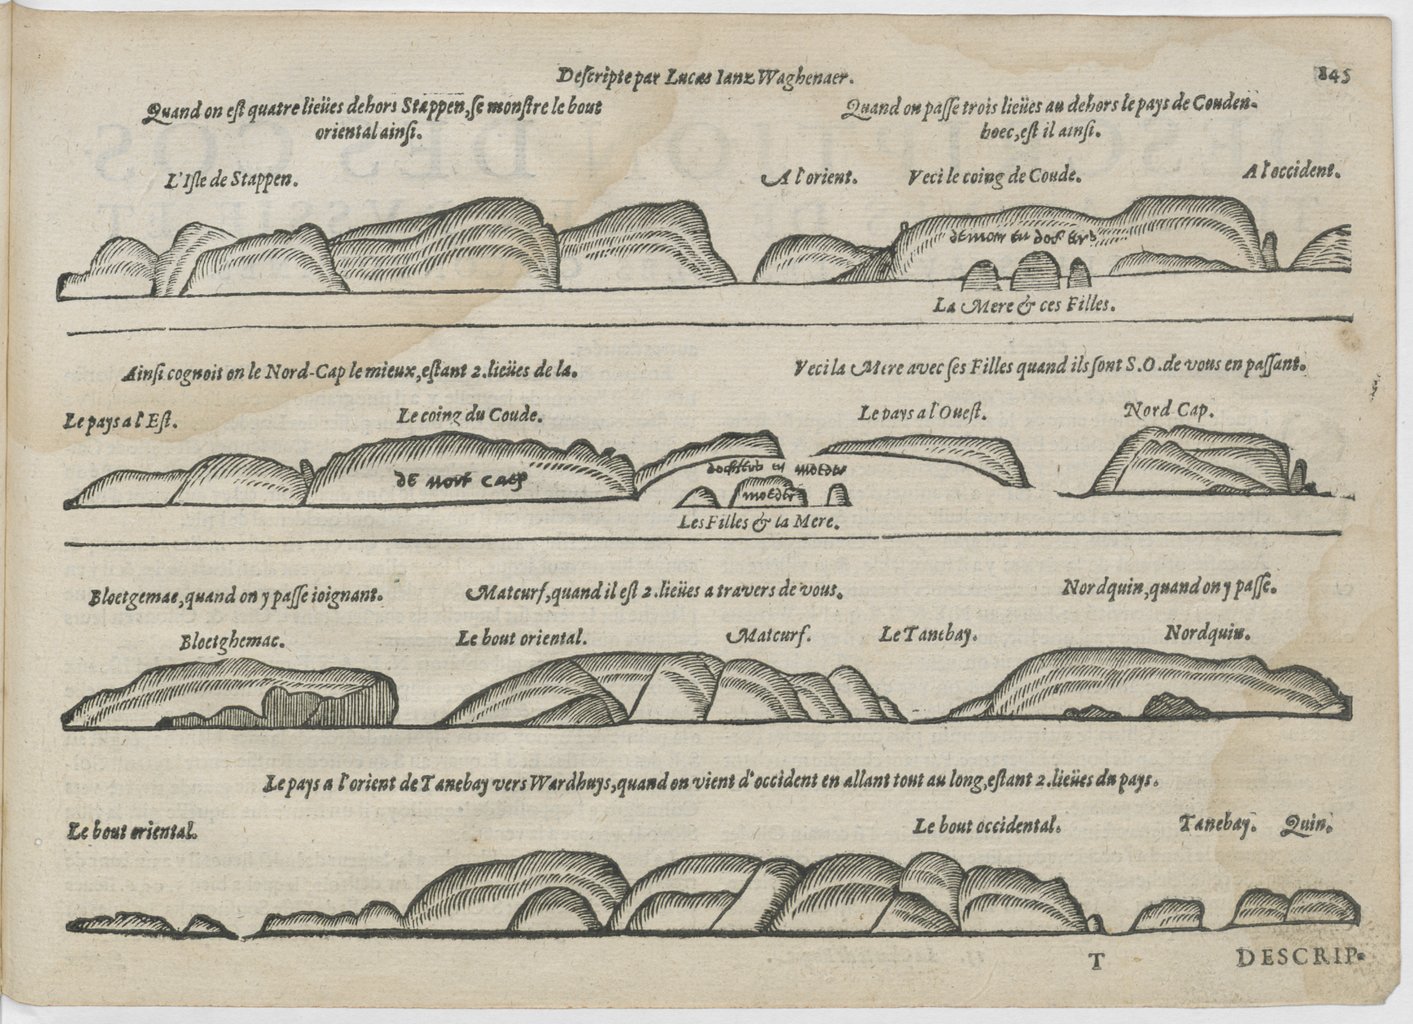 Descripte par Lucas Ianz Waghenaer.
845
Quand on est quatre lieües dehors Stappen, se monstre le bout
oriental ainsi.
Quand on passe trois lieües au dehors le pays de Couden-
hoec, est il ainsi.
L'Isle de Stappen.
A l'orient.
Veci le coing de Coude.
A l'occident.
La Mere & ces Filles.
Ainsi cognoit on le Nord-Cap le mieux, estant 2. lieües de la.
Veci la Mere avec ses Filles quand ils sont S.O. de vous en passant.
Le pays a l'Est.
Le coing du Coude.
Le pays a l'Ouest.
Nord Cap.
de nort caep
moeder
Les Filles & la Mere.
Bloetgemae, quand on y passe ioignant.
Matcurf, quand il est 2. lieües a travers de vous.
Nordquin, quand on y passe.
Bloetghemae.
Le bout oriental.
Matcurf.
Le Tanebay.
Nordquin.
Le pays a l'orient de Tanebay vers Wardhuys, quand on vient d'occident en allant tout au long, estant 2. lieües du pays.
Le bout oriental.
Le bout occidental.
Tanebay.
Quin.
T
DESCRIP-